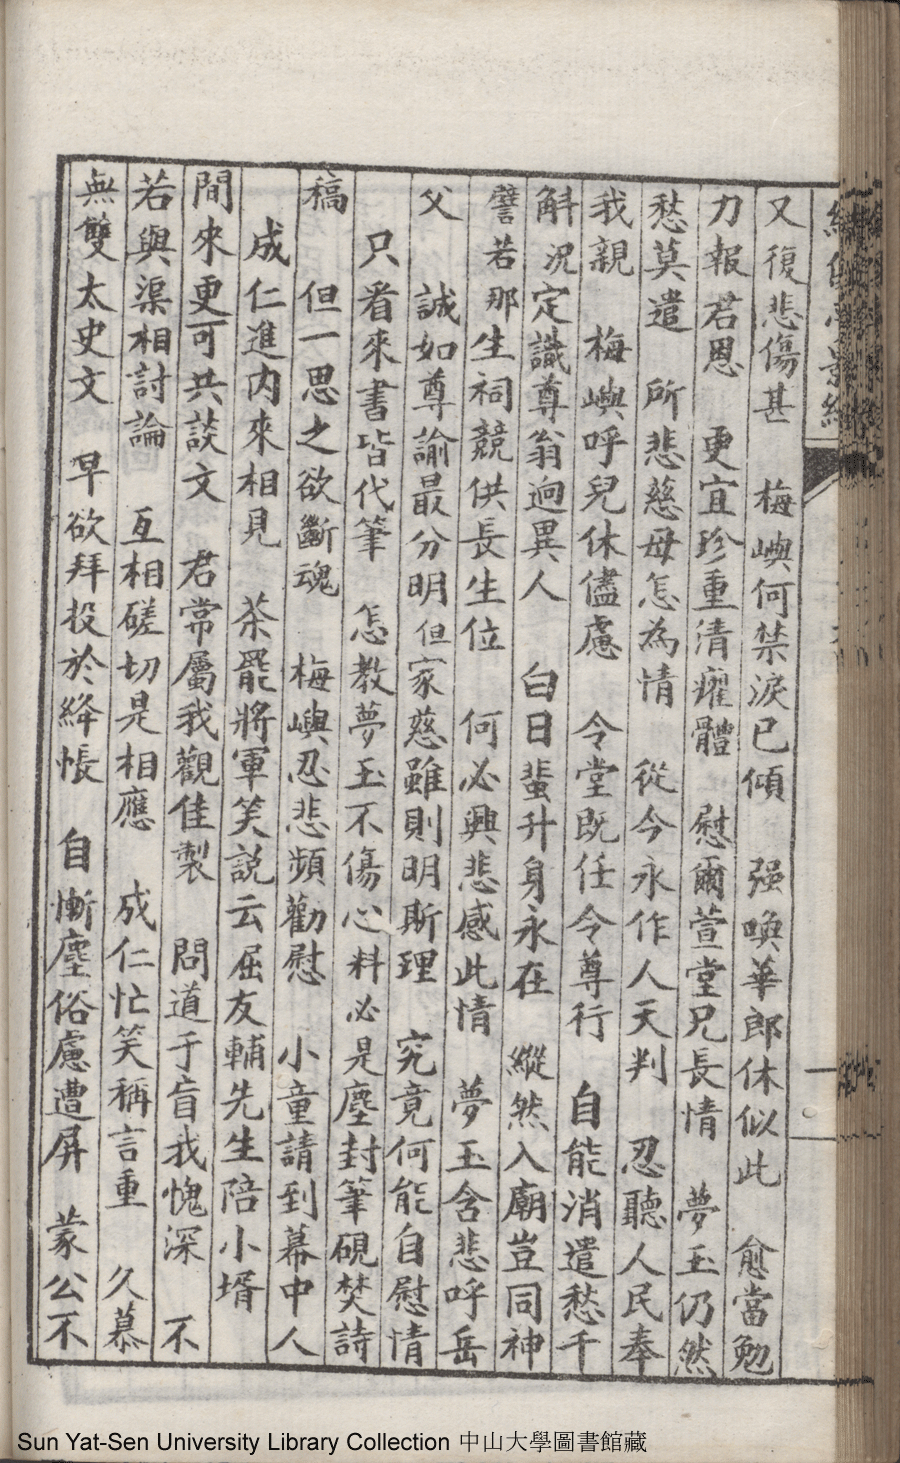 又復悲傷甚 梅嶼何禁淚已傾 强喚華郎休似此 愈當勉
力報君恩 更宜珍重清癯體 慰爾萱堂兄長情 夢玉仍然
愁莫遣 所悲慈母怎為情 從今永作人天判 忍聽人民奉
我親 梅嶼呼兒休儘慮 令堂既任令尊行 自能消遣愁千
斛 況定識尊翁迥異人 白日蜚升身永在 縱然入廟豈同神
譬若那生祠競供長生位 何必興悲感此情 夢玉含悲呼岳
父 誠如尊諭最分明 但家慈雖則明斯理 究竟何能自慰情
只看來書皆代筆 怎教夢玉不傷心 料必是塵封筆硯焚詩
稿 但一思之欲斷魂 梅嶼忍悲頻勸慰 小童請到幕中人
成仁進內來相見 茶罷將軍笑説云 屈友輔先生陪小壻
間來更可共談文 君常屬我觀佳製 問道于盲我愧深 不
若與渠相討論 互相磋切是相應 成仁忙笑稱言重 久慕
無雙太史文 早欲拜投於絳帳 自慚塵俗慮遭屏 蒙公不
Sun Yat-Sen University Library Collection 中山大學圖書館藏